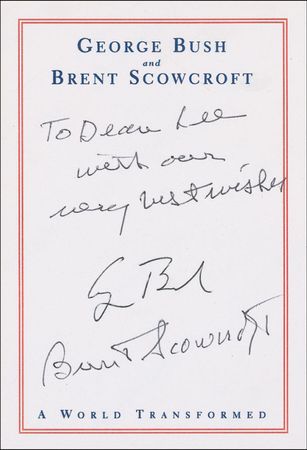 GEORGE BUSH
and
BRENT SCOWCROFT
To Dean Lee
with our
very best wishes
G Bush
Brent Scowcroft
A WORLD TRANSFORMED